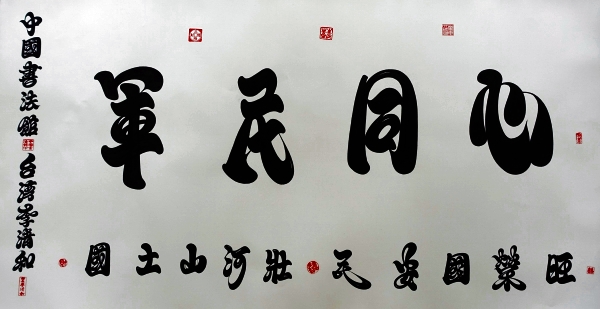 軍民同心
國土山河壯 民安國榮旺
中國書法館 台湾李清和